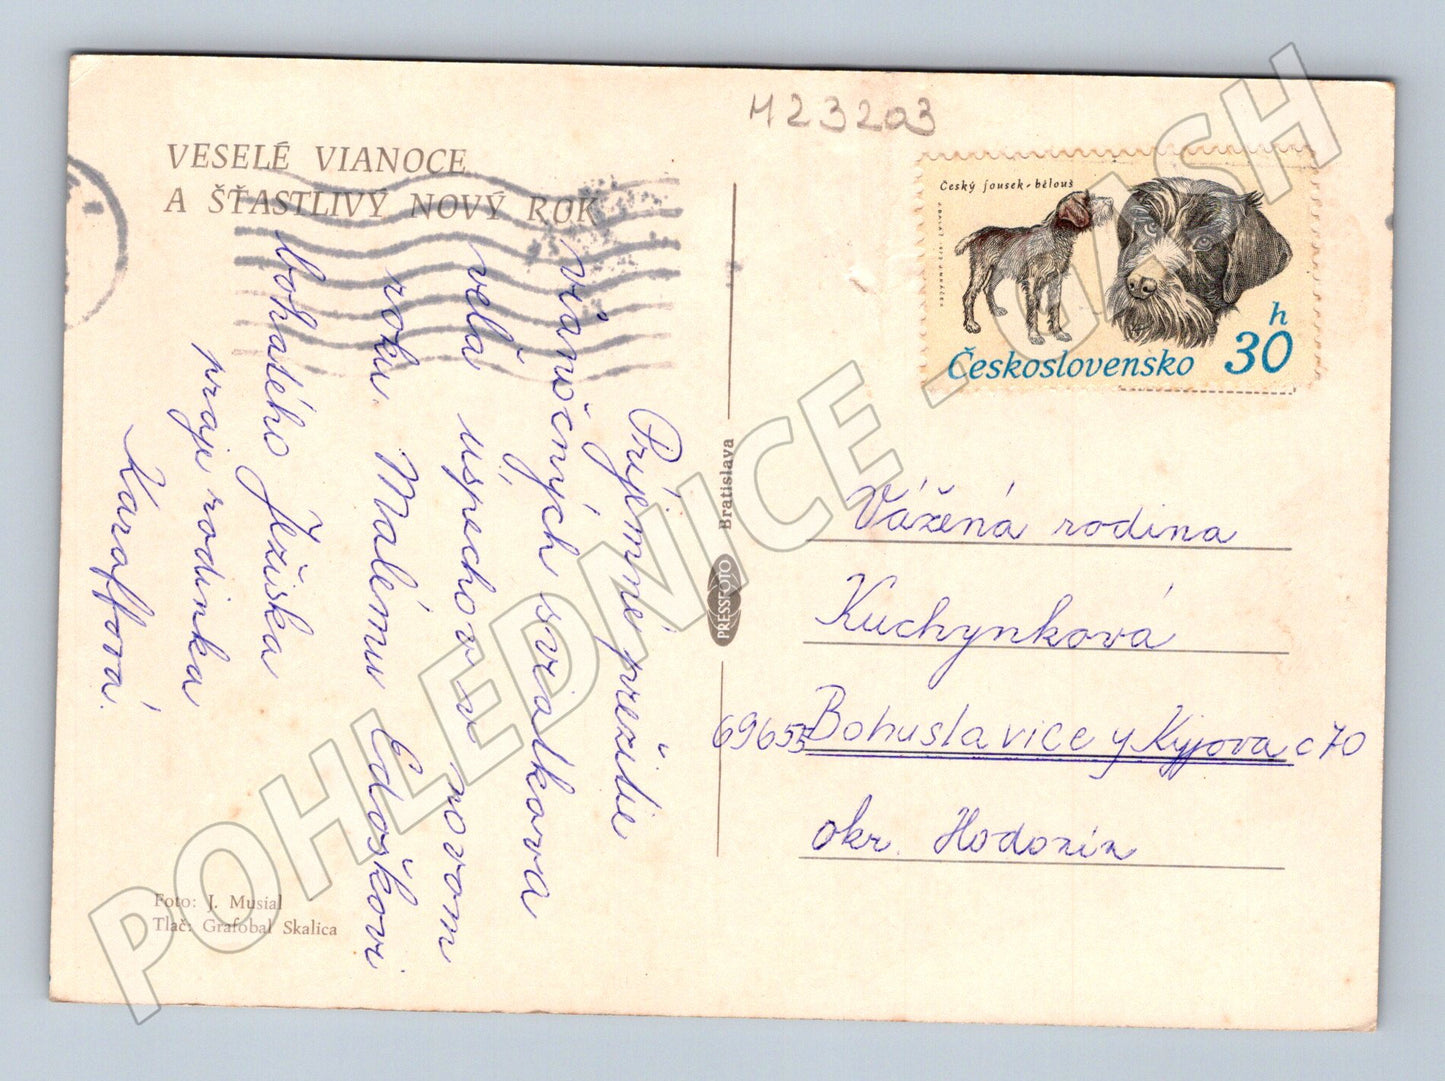 M23203
VESELÉ VIANOCE
A ŠŤASTLIVÝ NOVÝ ROK
Český fousek - bělouš
Československo 30 h
Príjemné prežitie
vianočných sviatkov a
veľa úspechov v novom
roku. Malému Edoškovi
bohatého Ježiška
praje rodinka
Karaffová.
Bratislava
PRESSFOTO
Vážená rodina
Kuchynková
69655 Bohuslavice u Kyjova č 70
okr. Hodonín
Foto: J. Musial
Tlač: Grafobal Skalica
POHLEDNICE - CASH